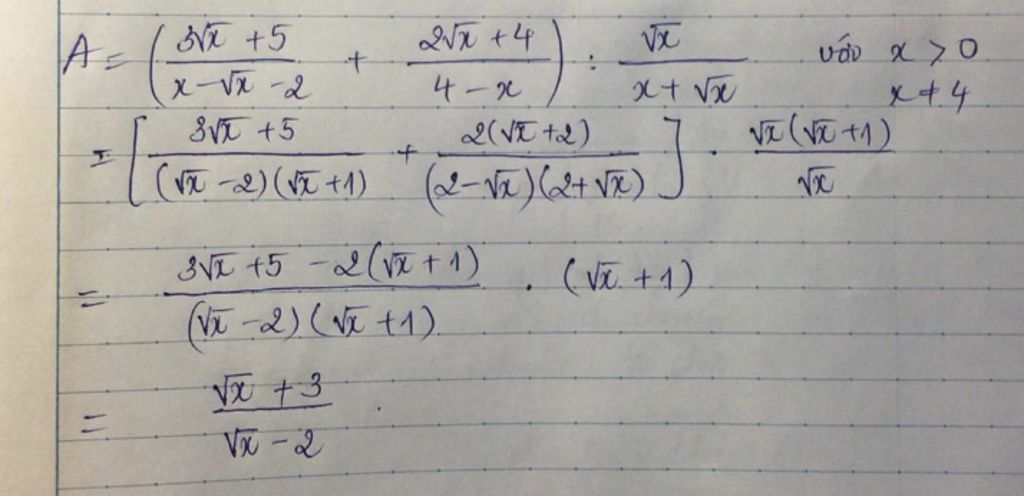 A = ( (3√x + 5)/(x - √x - 2) + (2√x + 4)/(4 - x) ) : √x/(x + √x) với x > 0
x ≠ 4
= [ (3√x + 5)/((√x - 2)(√x + 1)) + 2(√x + 2)/((2 - √x)(2 + √x)) ] . √x(√x + 1)/√x
= (3√x + 5 - 2(√x + 1))/((√x - 2)(√x + 1)) . (√x + 1)
= (√x + 3)/(√x - 2) .